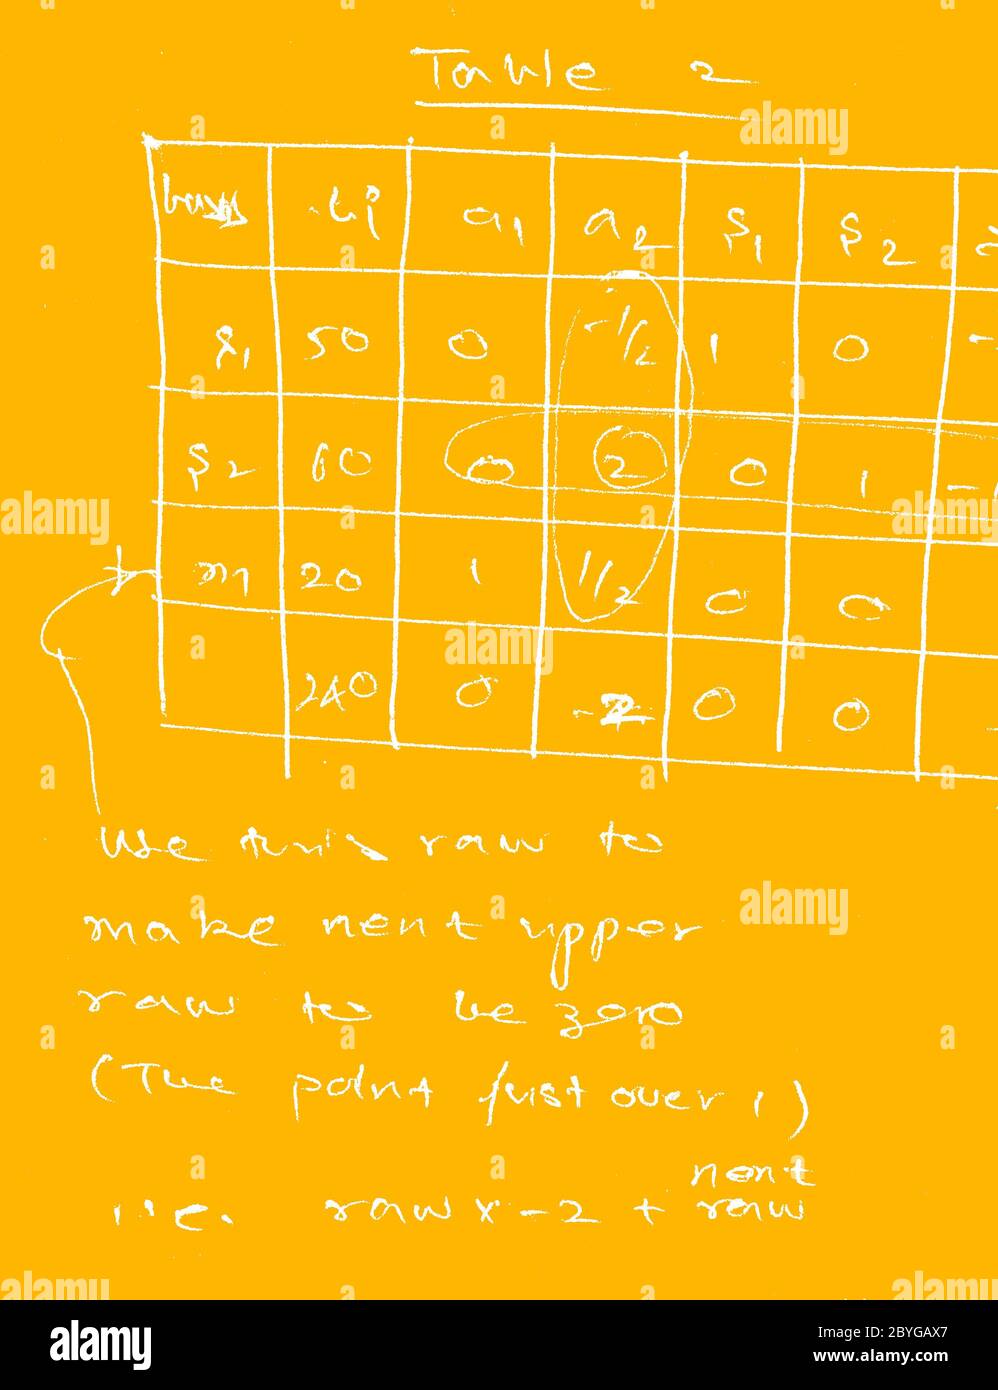 Table 2
basis bi a1 a2 S1 S2
S1 50 0 -1/2 1 0 -
S2 60 0 2 0 1 -1
m 20 1 1/2 0 0
240 0 -2 0 0
use this raw to
make nent upper
raw to be zero
(The point just over 1)
i.e. raw x -2 + nent raw
alamy
Image ID: 2BYGAX7
www.alamy.com